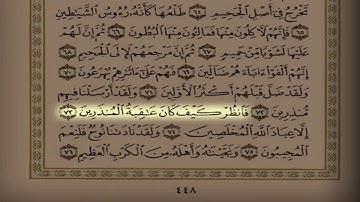 تَخْرُجُ فِىٓ أَصْلِ ٱلْجَحِيمِ ٦٤ طَلْعُهَا كَأَنَّهُۥ رُءُوسُ ٱلشَّيَٰطِينِ
٦٥ فَإِنَّهُمْ لَءَاكِلُونَ مِنْهَا فَمَالِـُٔونَ مِنْهَا ٱلْبُطُونَ ٦٦ ثُمَّ إِنَّ لَهُمْ
عَلَيْهَا لَشَوْبًا مِّنْ حَمِيمٍ ٦٧ ثُمَّ إِنَّ مَرْجِعَهُمْ لَإِلَى ٱلْجَحِيمِ ٦٨
إِنَّهُمْ أَلْفَوْا۟ ءَابَآءَهُمْ ضَآلِّينَ ٦٩ فَهُمْ عَلَىٰٓ ءَاثَٰرِهِمْ يُهْرَعُونَ ٧٠
وَلَقَدْ ضَلَّ قَبْلَهُمْ أَكْثَرُ ٱلْأَوَّلِينَ ٧١ وَلَقَدْ أَرْسَلْنَا فِيهِم
مُّنذِرِينَ ٧٢ فَٱنظُرْ كَيْفَ كَانَ عَٰقِبَةُ ٱلْمُنذَرِينَ ٧٣
إِلَّا عِبَادَ ٱللَّهِ ٱلْمُخْلَصِينَ ٧٤ وَلَقَدْ نَادَىٰنَا نُوحٌ فَلَنِعْمَ
ٱلْمُجِيبُونَ ٧٥ وَنَجَّيْنَٰهُ وَأَهْلَهُۥ مِنَ ٱلْكَرْبِ ٱلْعَظِيمِ ٧٦
٤٤٨